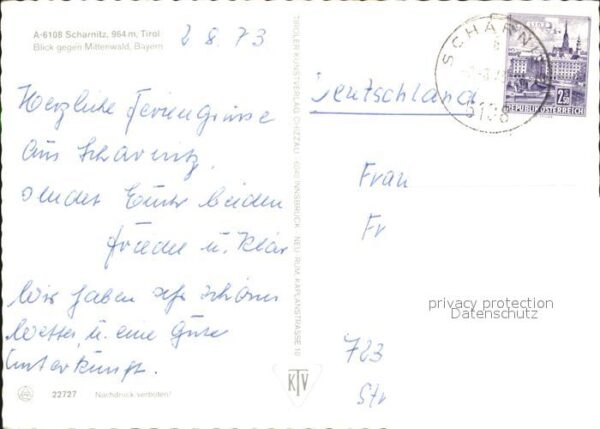 A-6108 Scharnitz, 964 m, Tirol
Blick gegen Mittenwald, Bayern
2 8. 73
Herzliche Feriengrüsse
aus Scharnitz,
sendet Euch beiden
Friedel u. Klär
Wir haben sehr schönes
Wetter u. eine gute
Unterkunft.
22727 Nachdruck verboten!
TIROLER KUNSTVERLAG CHIZZALI · 6040 INNSBRUCK NEU-RUM, KAPLANSTRASSE 10
KTV
SCHARNITZ
6108
2.50
REPUBLIK ÖSTERREICH
Deutschland
Frau
Fr
privacy protection
Datenschutz
723
Str